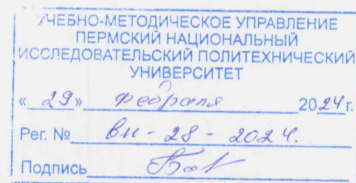 УЧЕБНО-МЕТОДИЧЕСКОЕ УПРАВЛЕНИЕ
ПЕРМСКИЙ НАЦИОНАЛЬНЫЙ
ИССЛЕДОВАТЕЛЬСКИЙ ПОЛИТЕХНИЧЕСКИЙ
УНИВЕРСИТЕТ
« 29 » февраля 2024г.
Рег. № вн - 28 - 2024.
Подпись